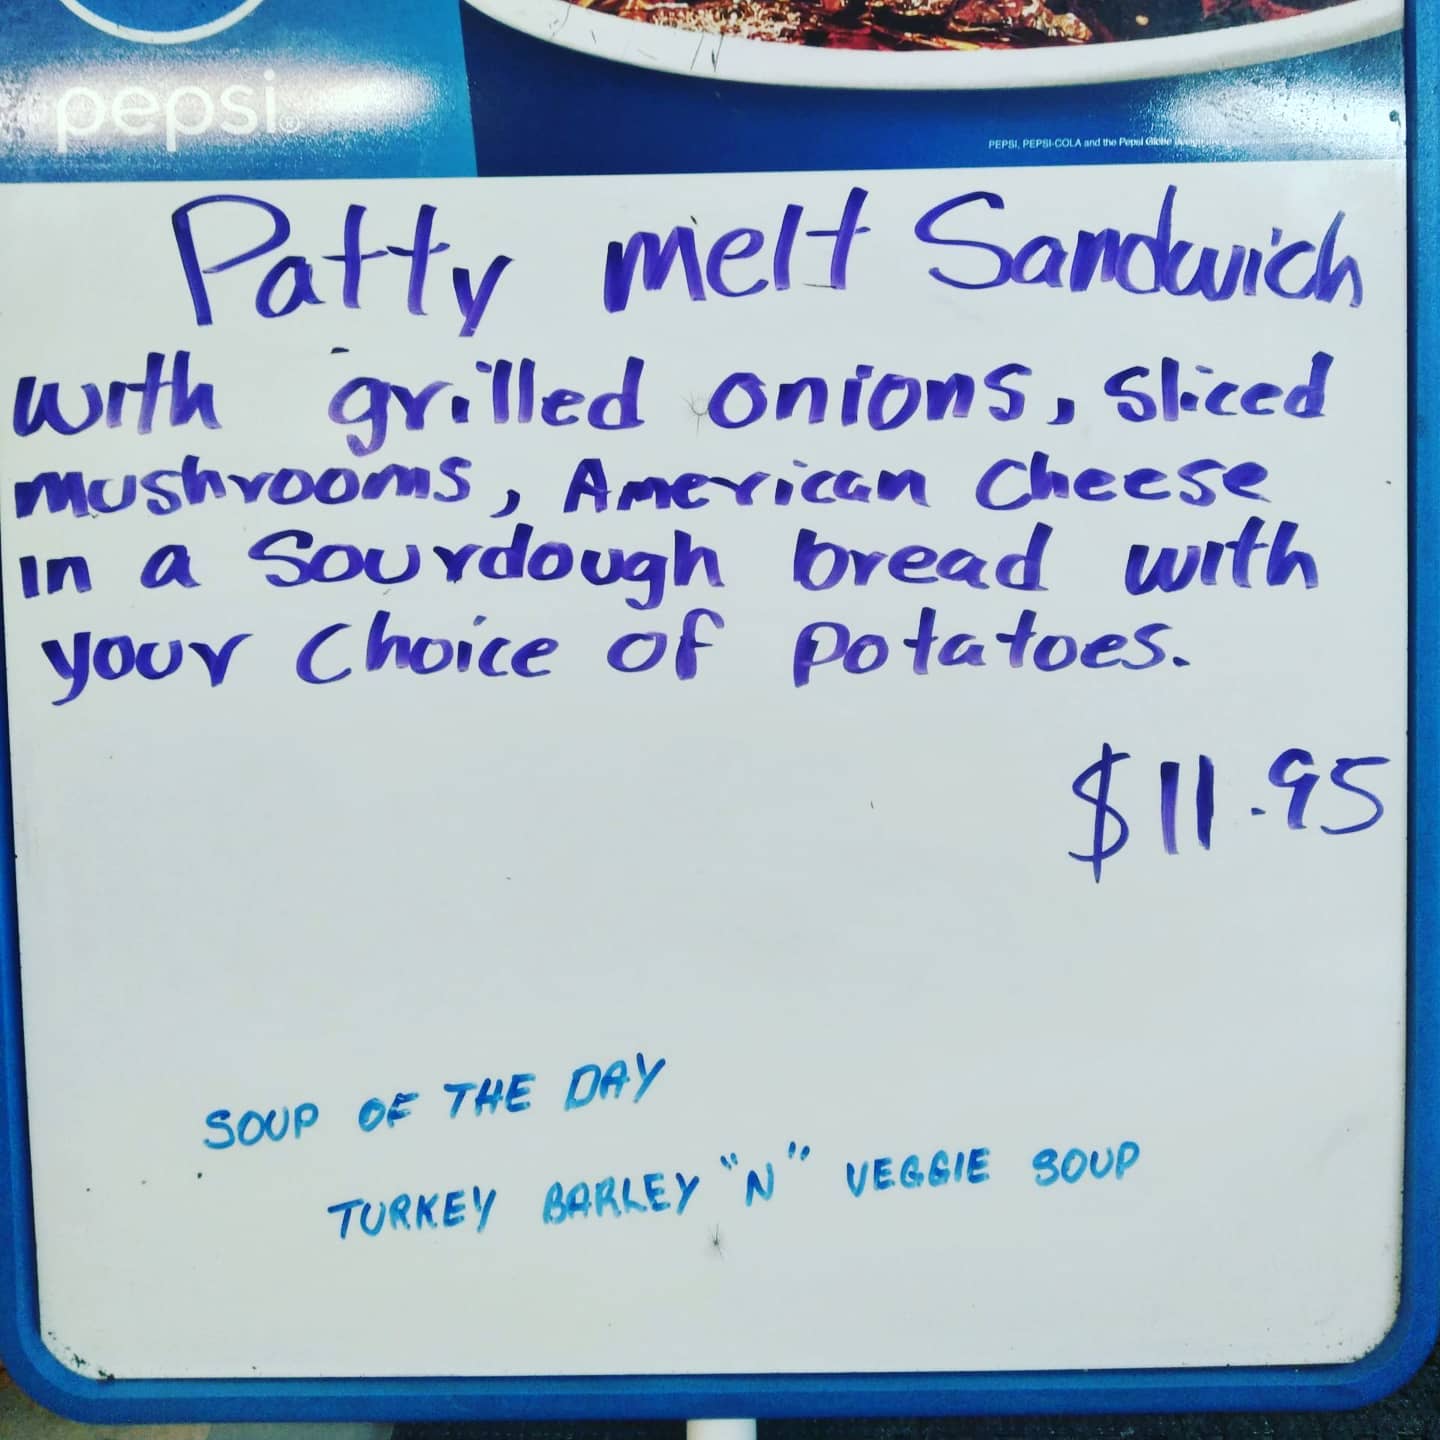 pepsi®
PEPSI, PEPSI-COLA and the Pepsi Globe
Patty melt Sandwich
with grilled onions, sliced
mushrooms, American cheese
in a Sourdough bread with
your choice of potatoes.
$11.95
SOUP OF THE DAY
TURKEY BARLEY "N" VEGGIE SOUP